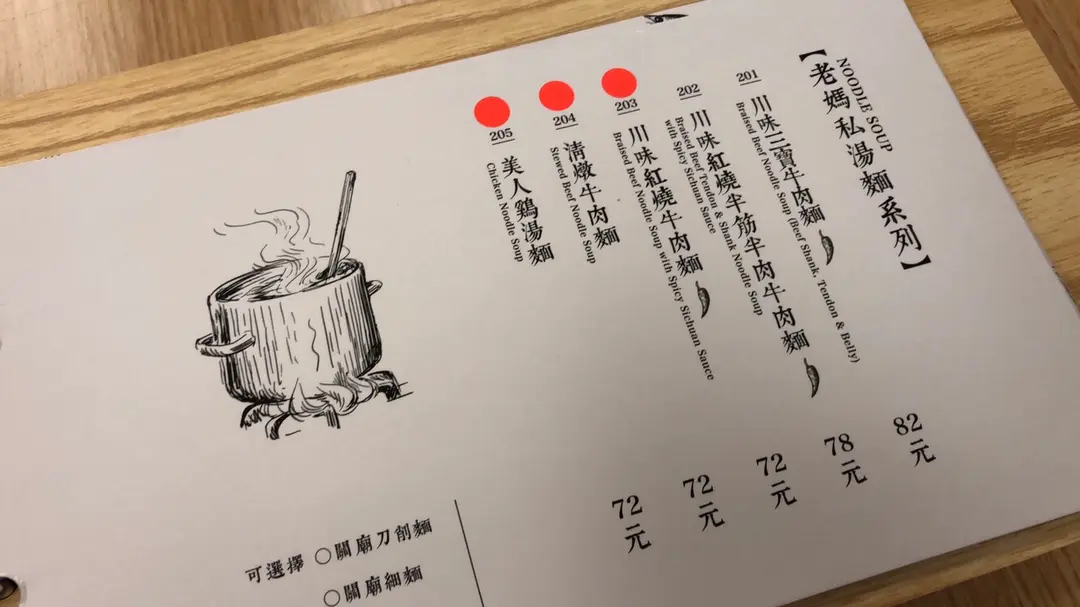 【老媽私湯麵系列】
NOODLE SOUP
201
川味三寶牛肉麵
Braised Beef Noodle Soup (Beef Shank, Tendon & Belly)
82元
202
川味紅燒半筋半肉牛肉麵
Braised Beef Tendon & Shank Noodle Soup
with Spicy Sichuan Sauce
78元
203
川味紅燒牛肉麵
Braised Beef Noodle Soup with Spicy Sichuan Sauce
72元
204
清燉牛肉麵
Stewed Beef Noodle Soup
72元
205
美人鷄湯麵
Chicken Noodle Soup
72元
可選擇 ○關廟刀削麵
○關廟細麵